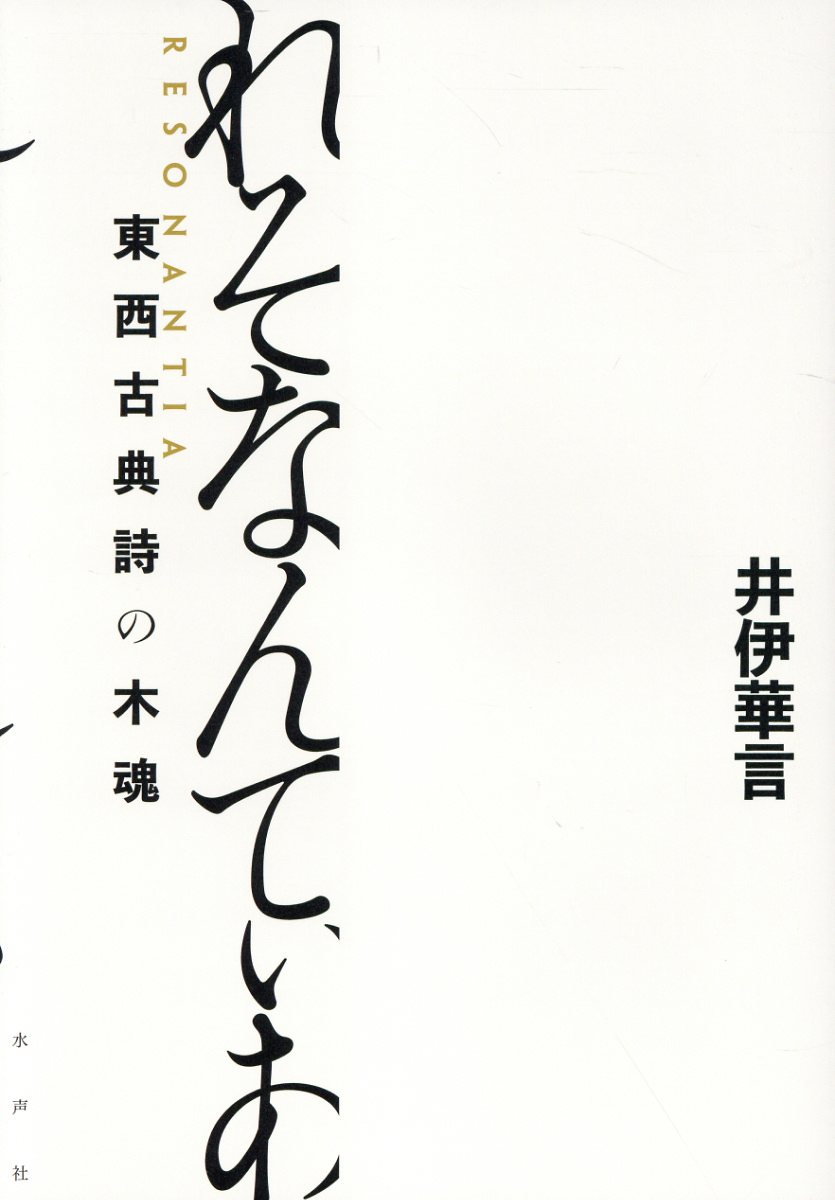 井伊華言
れそなんてぃあ
RESONANTIA
東西古典詩の木魂
水声社